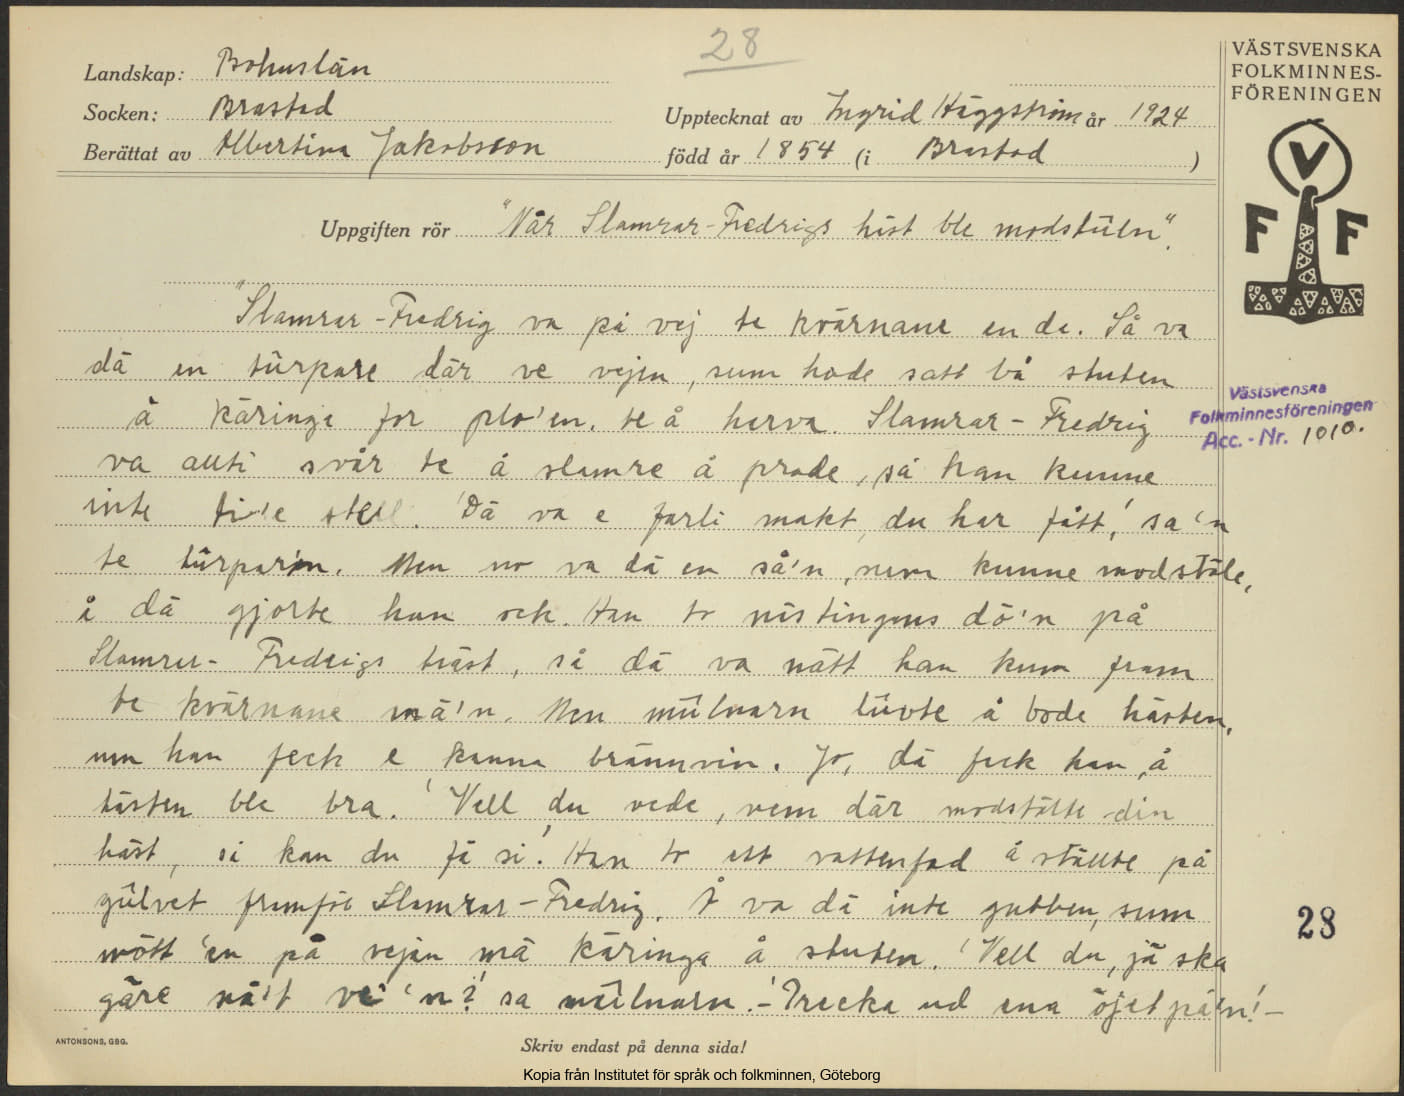 28
VÄSTSVENSKA
FOLKMINNES-
FÖRENINGEN
Landskap: Bohuslän
Socken: Brastad
Upptecknat av Ingrid Häggström år 1924
Berättat av Albertina Jakobsson född år 1854 (i Brastad)
V
F F
Uppgiften rör "När Slamrar-Fredrigs häst ble modstüln".
"Slamrar-Fredrig va på vej te kvärnane en da. Så va
dä en türpare där ve vejen, sum hade satt bå stuten
å käringa for plo'en, te å harva. Slamrar-Fredrig
va allti svår te å slamre å prade, så han kunne
inte ti'e stell. 'Dä va e farli makt, du har fått', sa'n
te türpar'n. Men no va dä en så'n, sum kunne modstäle,
å dä gjorte han ock. Han to dö'n på
Slamrar-Fredrigs häst, så dä va nätt han kum fram
te kvärnane mä'n. Men mülnarn lüvte å bode hästen,
um han feck e kanna brännvin. Jo, dä feck han, å
hästen ble bra. 'Vell du vede, vem där modstälte din
häst, så kan du få si'. Han to ett vattenfad å ställte på
gülvet framför Slamrar-Fredrig. Å va dä inte gubben, sum
mött 'en på vejen mä käringa å stuten. 'Vell du, jä ska
gäre nå't ve 'n?' sa mülnarn. - 'Trecka ud ena öjet på'n!' -
Västsvenska
Folkminnesföreningen
Acc. - Nr. 1010.
28
ANTONSONS, GBG.
Skriv endast på denna sida!
Kopia från Institutet för språk och folkminnen, Göteborg